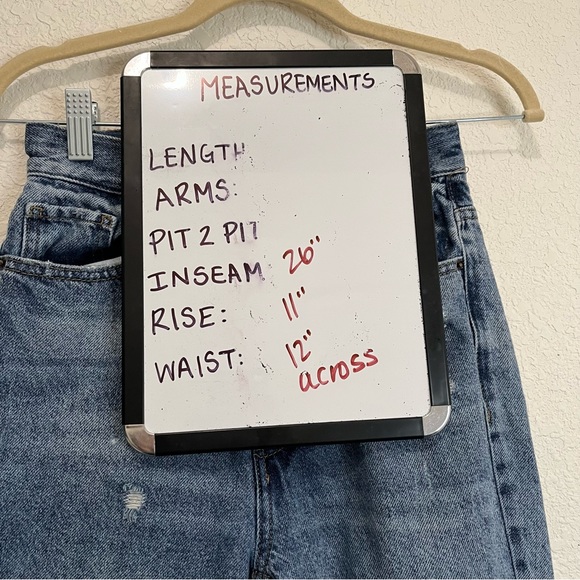 MEASUREMENTS
LENGTH
ARMS:
PIT 2 PIT
INSEAM 26"
RISE: 11"
WAIST: 12"
across